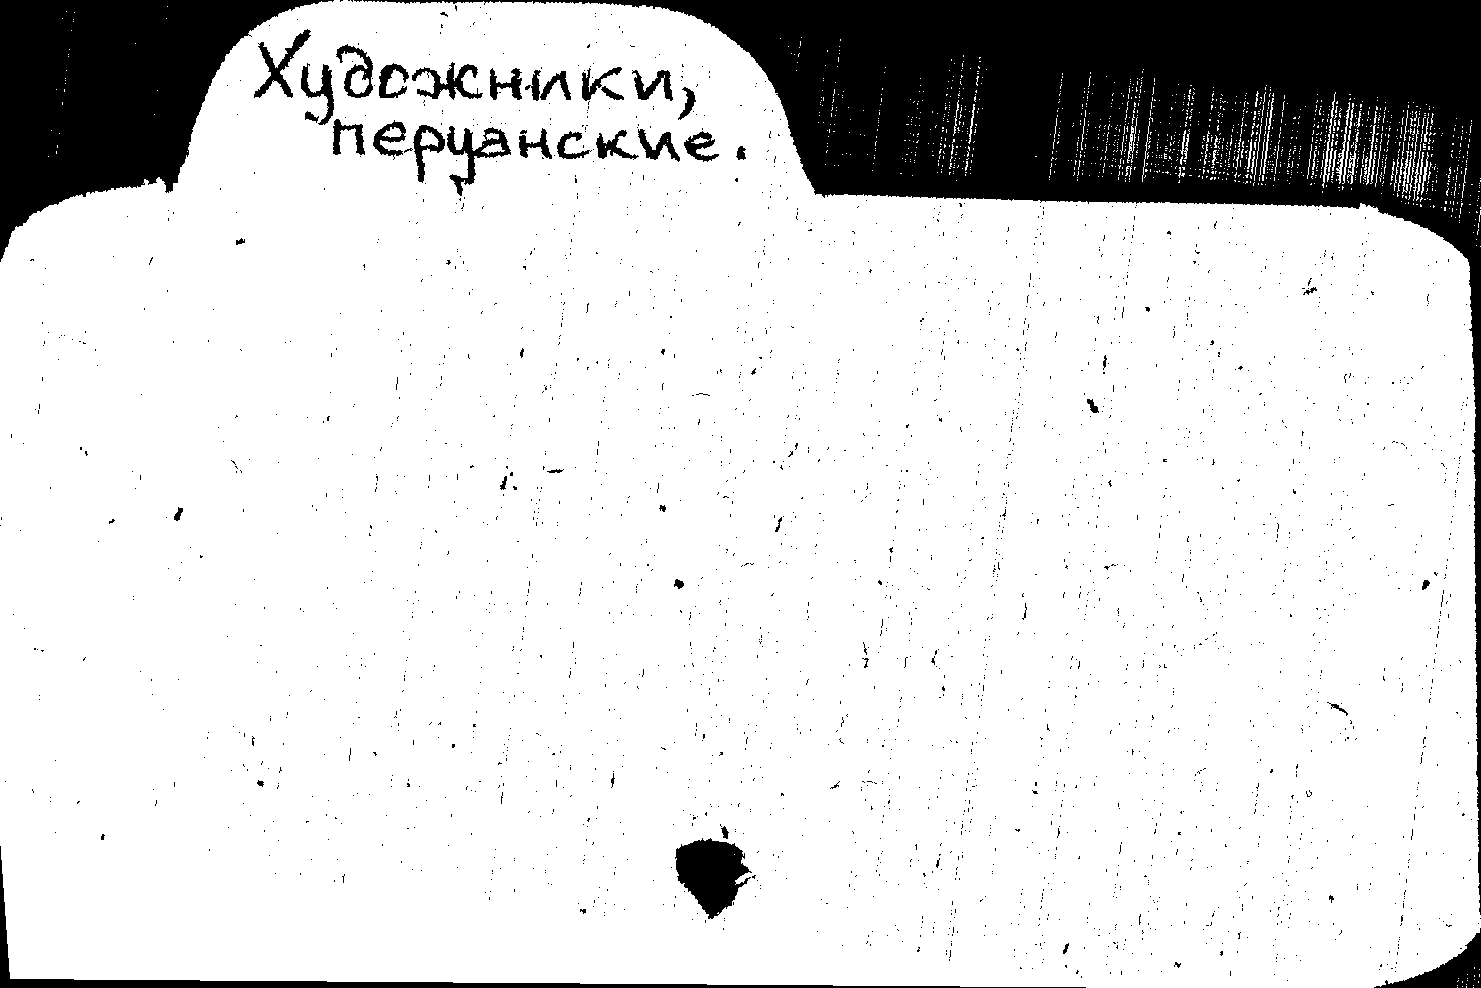 Художники,
перуанские.